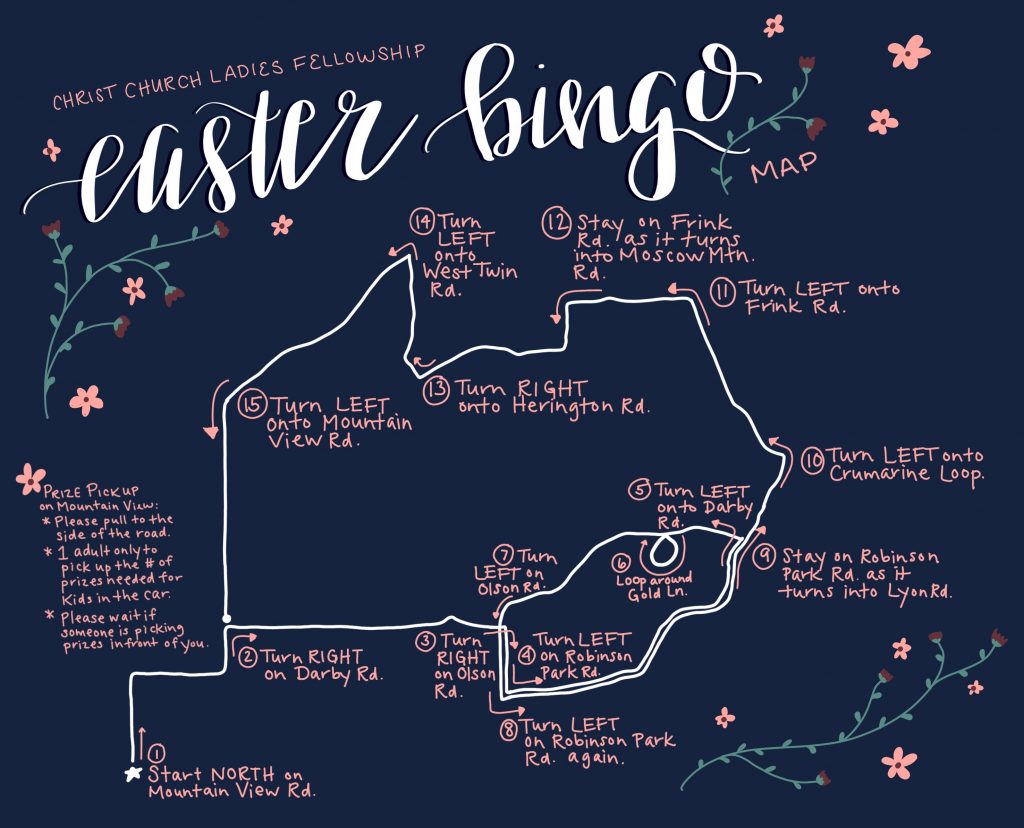 CHRIST CHURCH LADIES FELLOWSHIP
easter bingo
MAP
14 Turn
LEFT
onto
West Twin
Rd.
12 Stay on Frink
Rd. as it turns
into Moscow Mtn.
Rd.
11 Turn LEFT onto
Frink Rd.
13 Turn RIGHT
onto Herington Rd.
15 Turn LEFT
onto Mountain
View Rd.
10 Turn LEFT onto
Crumarine Loop.
PRIZE PICKUP
on Mountain View:
* Please pull to the
side of the road.
* 1 adult only to
pick up the # of
prizes needed for
Kids in the car.
* Please wait if
someone is picking
prizes in front of you.
5 Turn LEFT
onto Darby
Rd.
6
Loop around
Gold Ln.
7 Turn
LEFT on
Olson Rd.
9 Stay on Robinson
Park Rd. as it
turns into Lyon Rd.
2 Turn RIGHT
on Darby Rd.
3 Turn
RIGHT
on Olson
Rd.
4 Turn LEFT
on Robinson
Park Rd.
8 Turn LEFT
on Robinson Park
Rd. again.
1
Start NORTH on
Mountain View Rd.